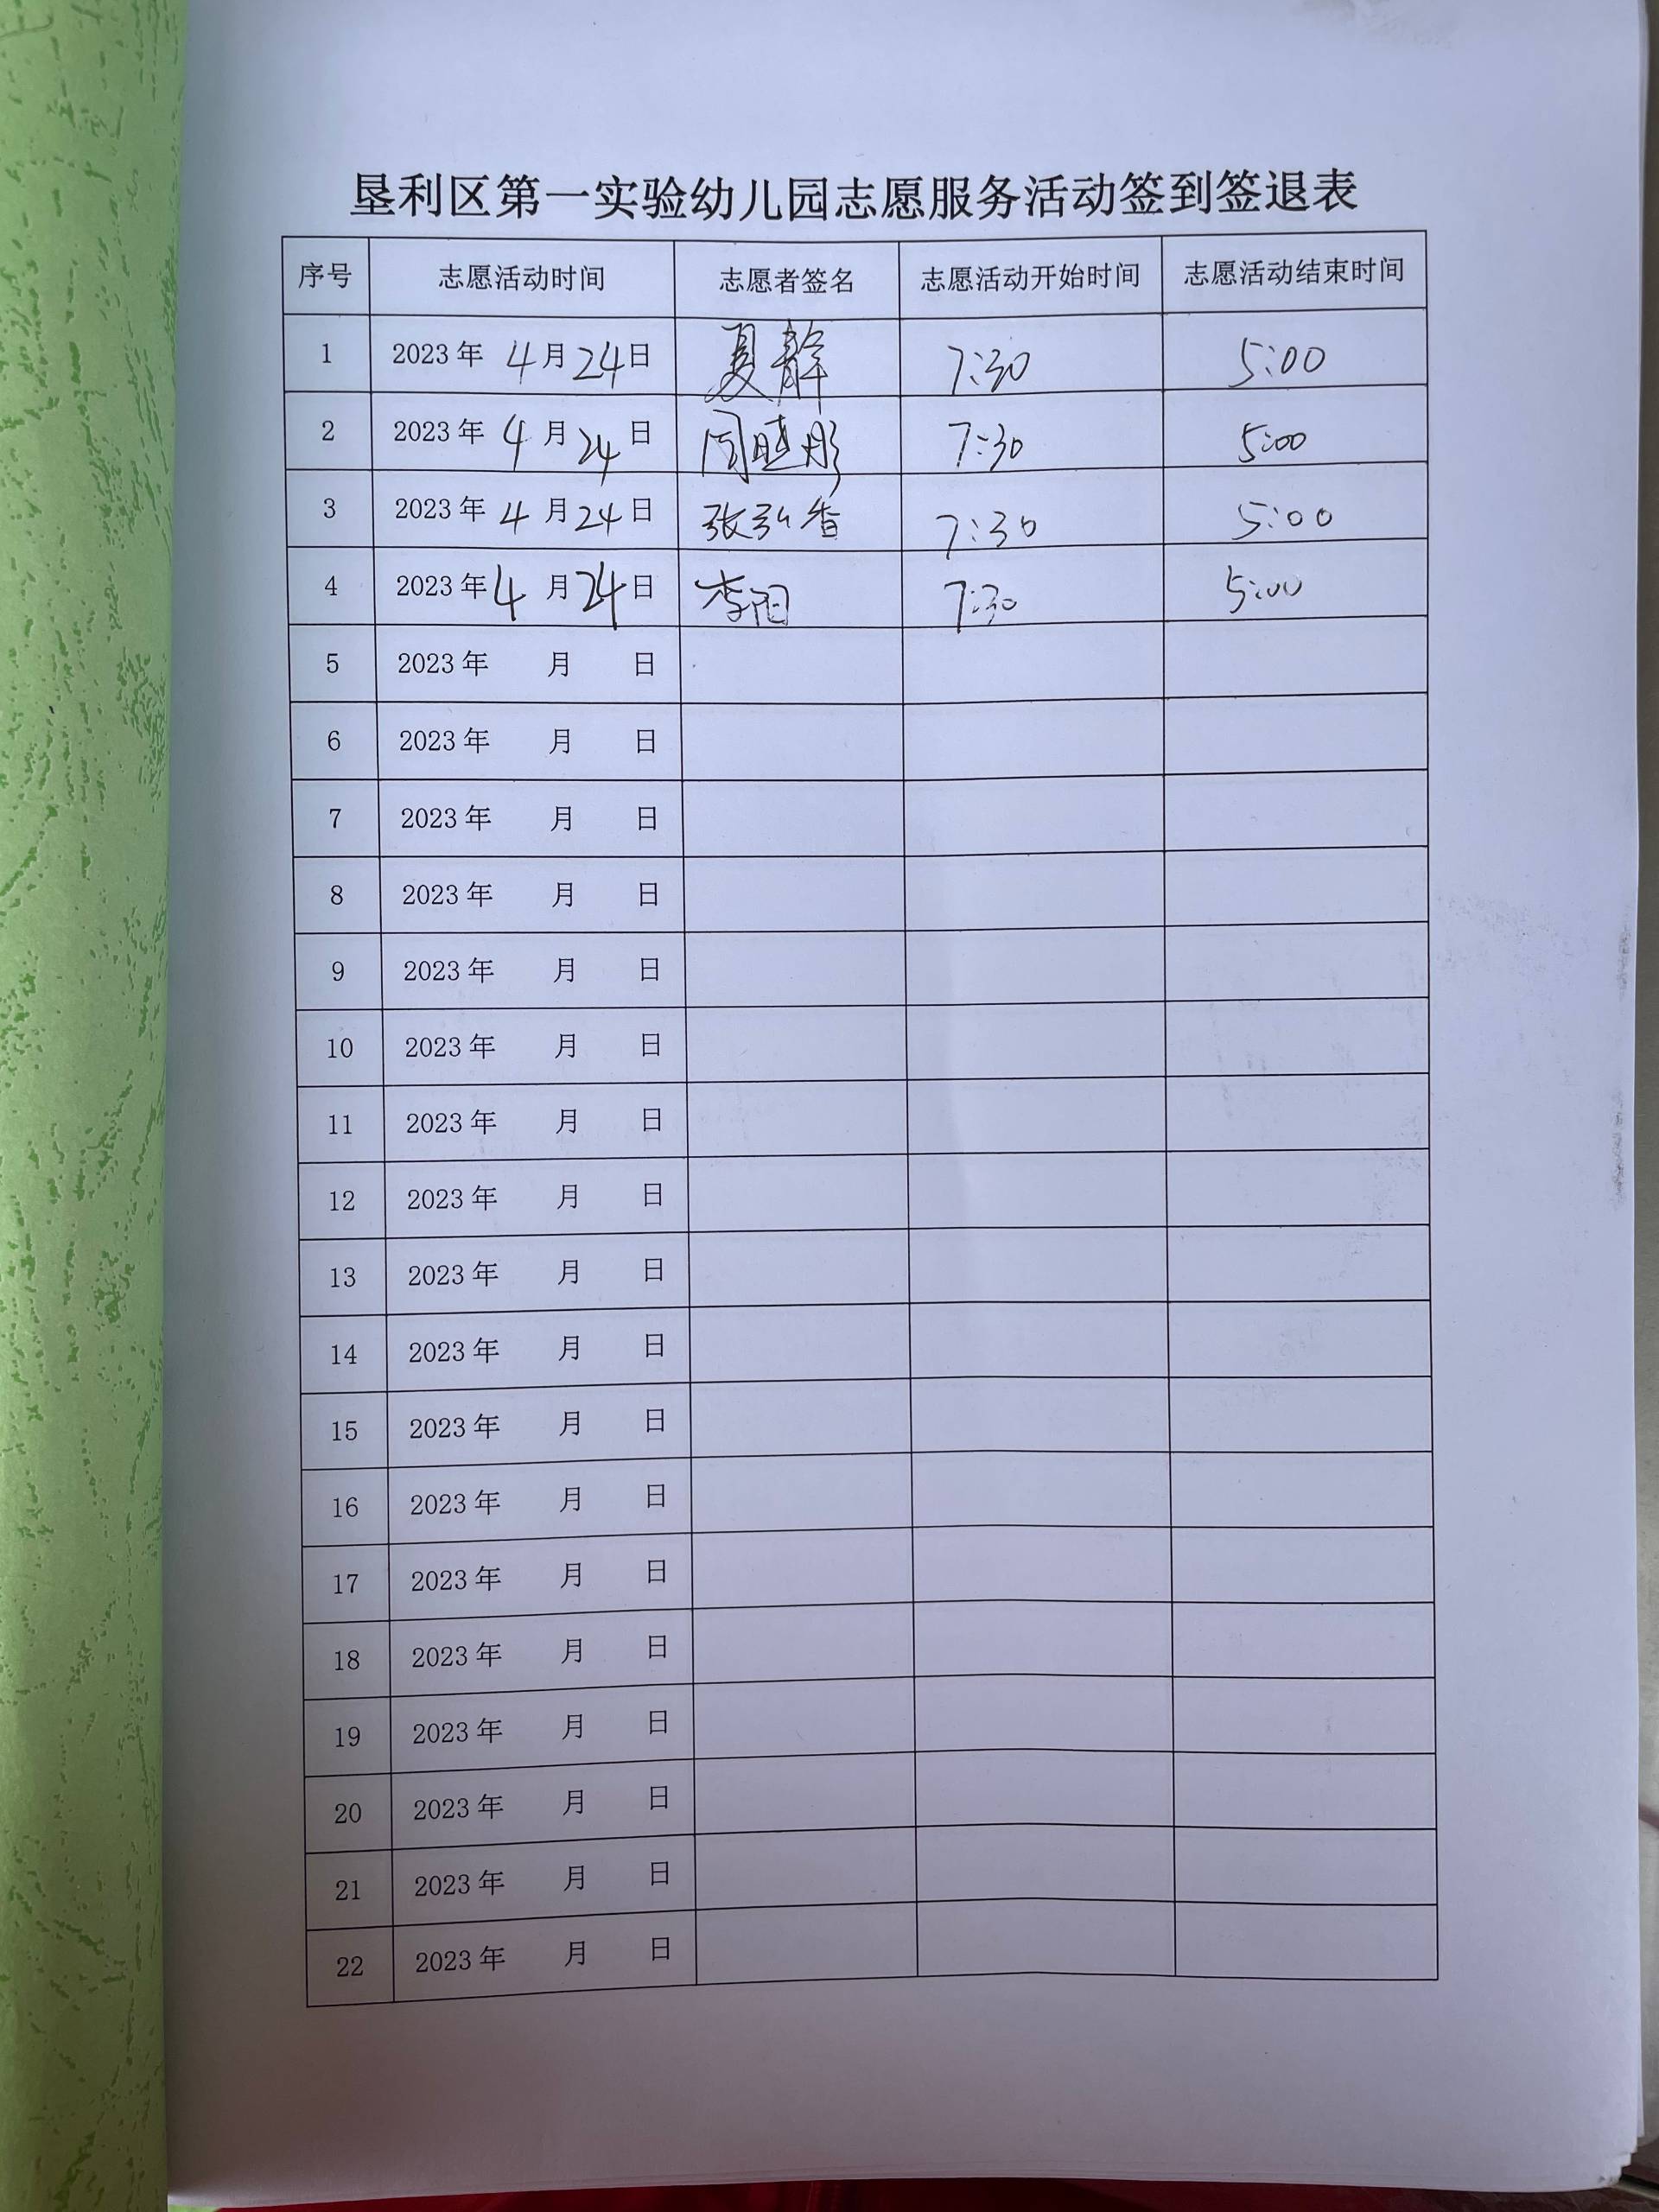 垦利区第一实验幼儿园志愿服务活动签到签退表
序号 志愿活动时间 志愿者签名 志愿活动开始时间 志愿活动结束时间
1 2023年 4月24日 夏静 7:30 5:00
2 2023年 4月24日 周曉彤 7:30 5:00
3 2023年 4月24日 张弘香 7:30 5:00
4 2023年 4月24日 李阳 7:30 5:00
5 2023年 月 日
6 2023年 月 日
7 2023年 月 日
8 2023年 月 日
9 2023年 月 日
10 2023年 月 日
11 2023年 月 日
12 2023年 月 日
13 2023年 月 日
14 2023年 月 日
15 2023年 月 日
16 2023年 月 日
17 2023年 月 日
18 2023年 月 日
19 2023年 月 日
20 2023年 月 日
21 2023年 月 日
22 2023年 月 日